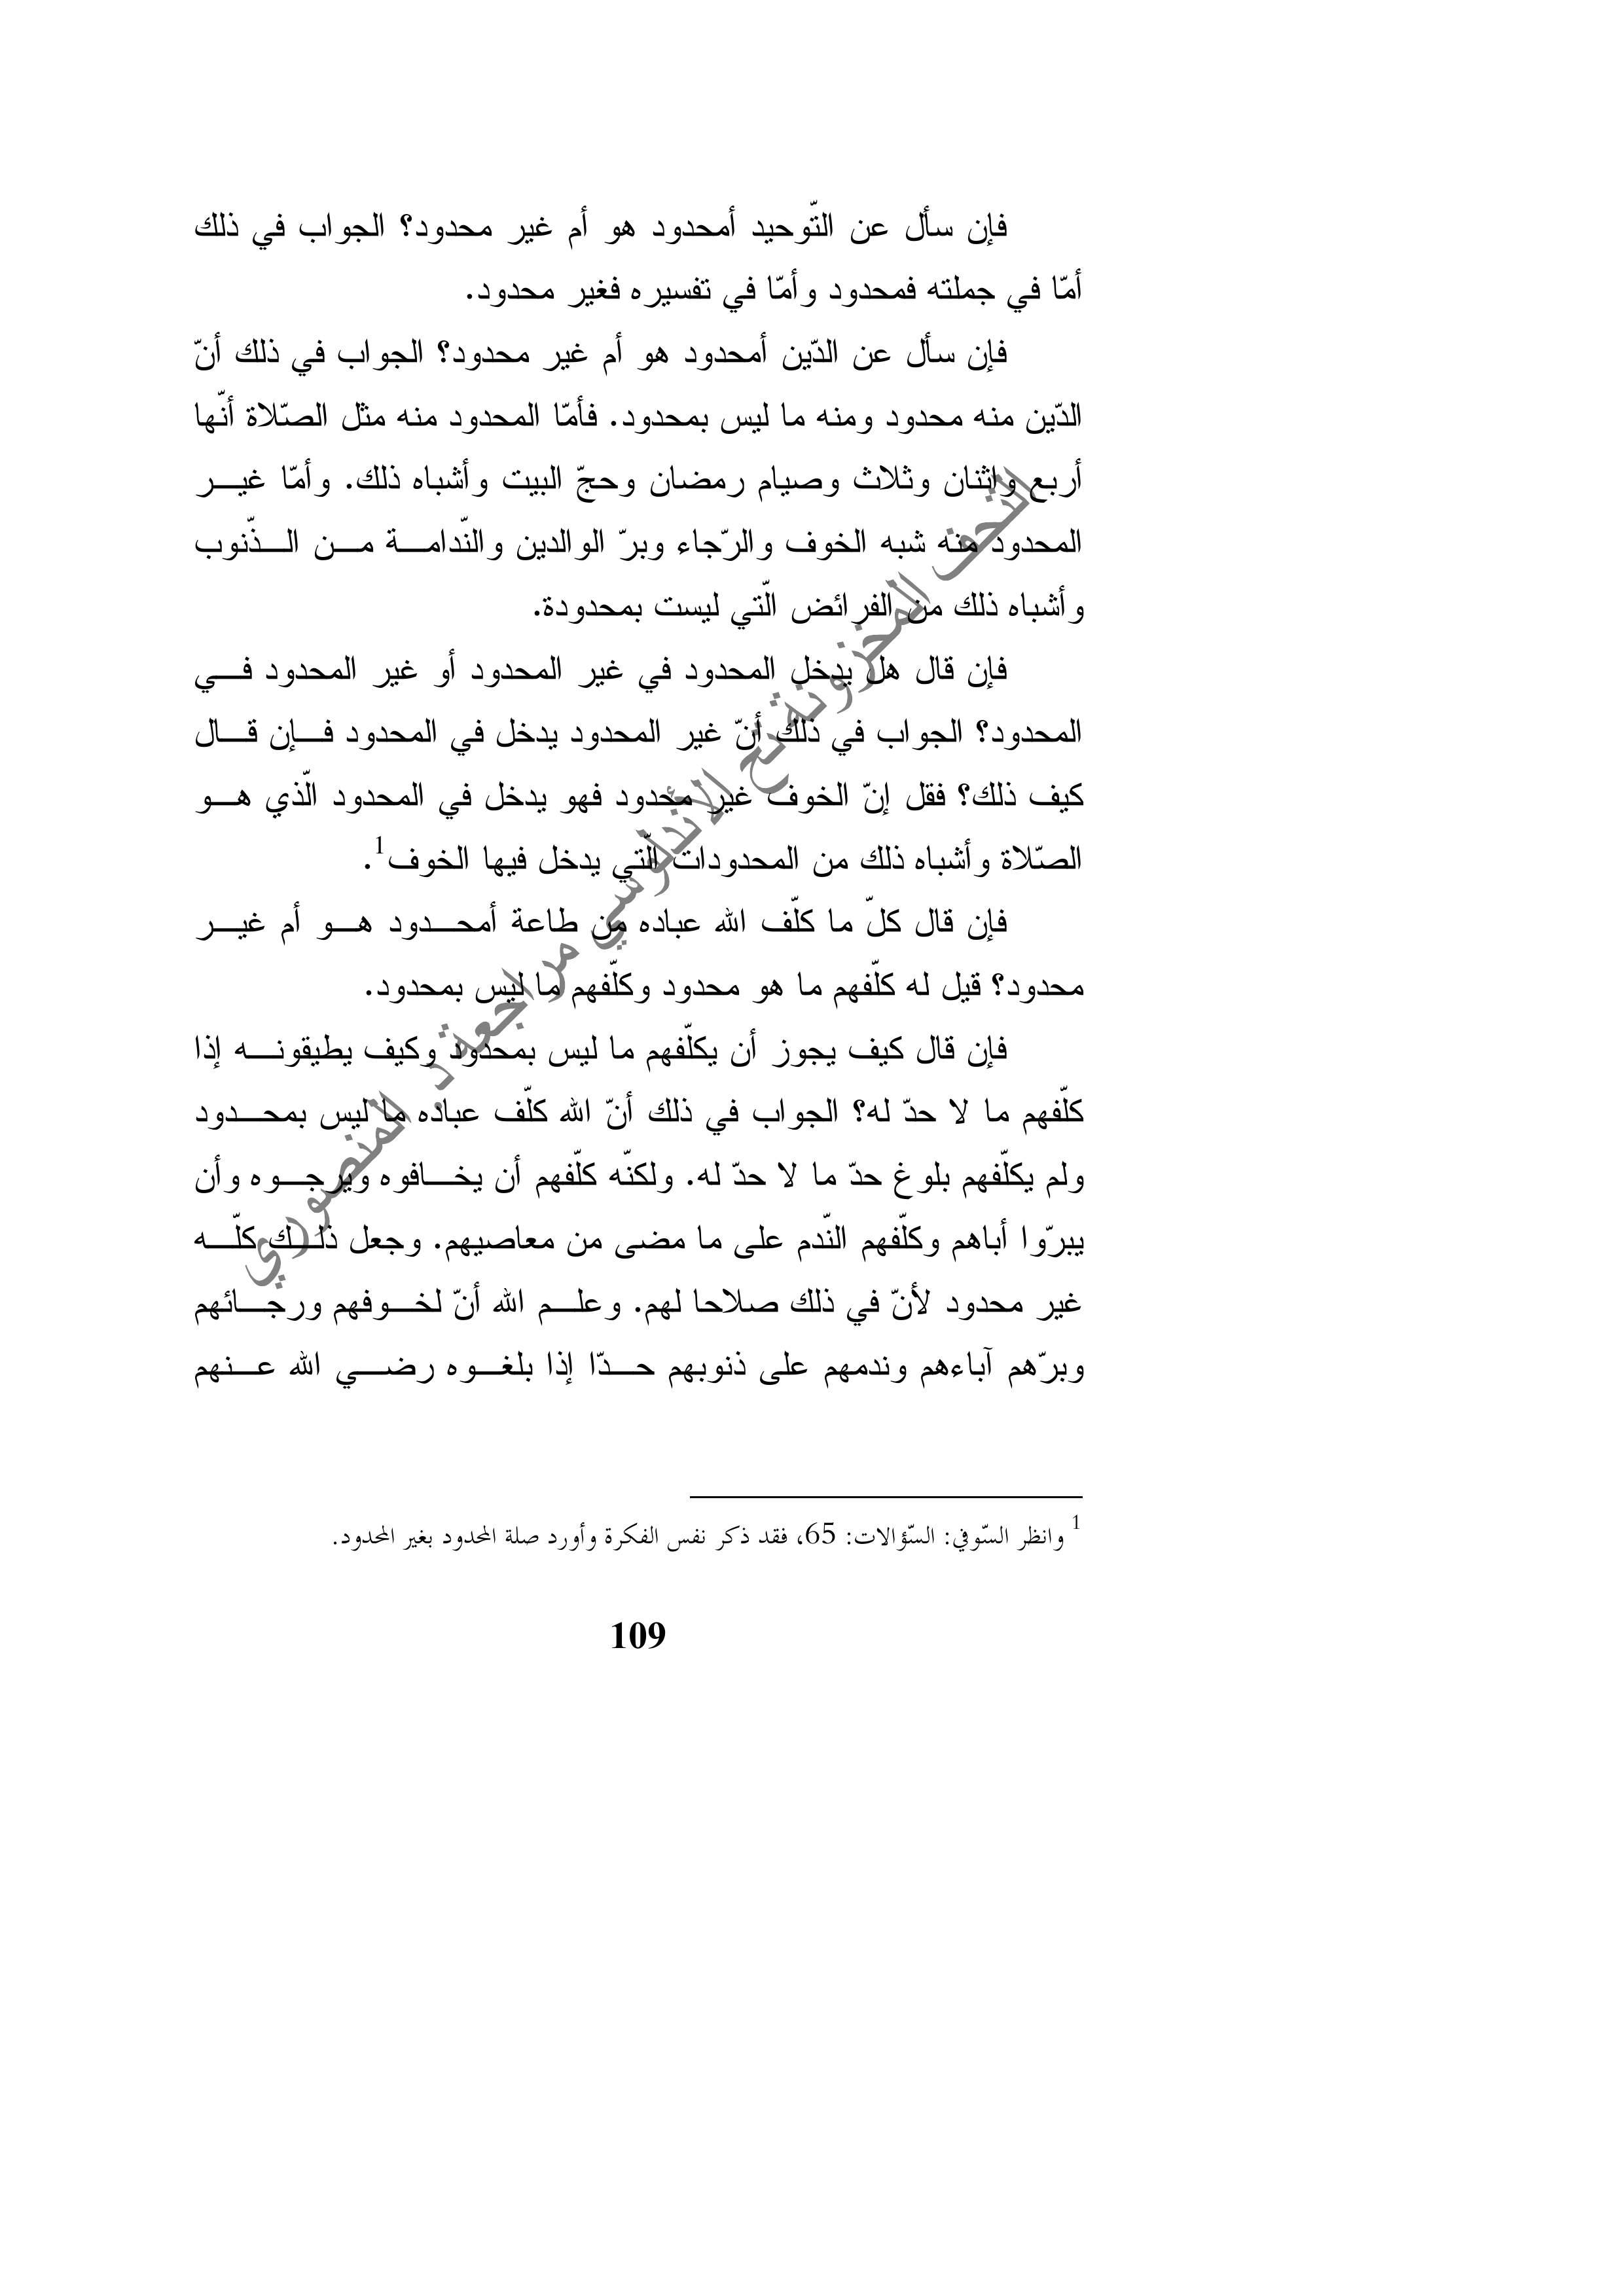 فإن سأل عن التّوحيد أمحدود هو أم غير محدود؟ الجواب في ذلك
أمّا في جملته فمحدود وأمّا في تفسيره فغير محدود.
فإن سأل عن الدّين أمحدود هو أم غير محدود؟ الجواب في ذلك أنّ
الدّين منه محدود ومنه ما ليس بمحدود. فأمّا المحدود منه مثل الصّلاة أنّها
أربع واثنان وثلاث وصيام رمضان وحجّ البيت وأشباه ذلك. وأمّا غيـــر
المحدود منه شبه الخوف والرّجاء وبرّ الوالدين والنّدامـــة مـــن الـــذّنوب
وأشباه ذلك من الفرائض الّتي ليست بمحدودة.
فإن قال هل يدخل المحدود في غير المحدود أو غير المحدود فـــي
المحدود؟ الجواب في ذلك أنّ غير المحدود يدخل في المحدود فـــإن قـــال
كيف ذلك؟ فقل إنّ الخوف غير محدود فهو يدخل في المحدود الّذي هـــو
الصّلاة وأشباه ذلك من المحدودات الّتي يدخل فيها الخوف1.
فإن قال كلّ ما كلّف الله عباده من طاعة أمحـــدود هـــو أم غيـــر
محدود؟ قيل له كلّفهم ما هو محدود وكلّفهم ما ليس بمحدود.
فإن قال كيف يجوز أن يكلّفهم ما ليس بمحدود وكيف يطيقونـــه إذا
كلّفهم ما لا حدّ له؟ الجواب في ذلك أنّ الله كلّف عباده ما ليس بمحـــدود
ولم يكلّفهم بلوغ حدّ ما لا حدّ له. ولكنّه كلّفهم أن يخـــافوه ويرجـــوه وأن
يبرّوا أباهم وكلّفهم النّدم على ما مضى من معاصيهم. وجعل ذلـــك كلّـــه
غير محدود لأنّ في ذلك صلاحا لهم. وعلـــم الله أنّ لخـــوفهم ورجـــائهم
وبرّهم آباءهم وندمهم على ذنوبهم حـــدّا إذا بلغـــوه رضـــي الله عـــنهم
1 وانظر السّوفي: السّؤالات: 65، فقد ذكر نفس الفكرة وأورد صلة المحدود بغير المحدود.
109
التحف المخزونة تح الأندلوسي مراجعة د. المنصوري